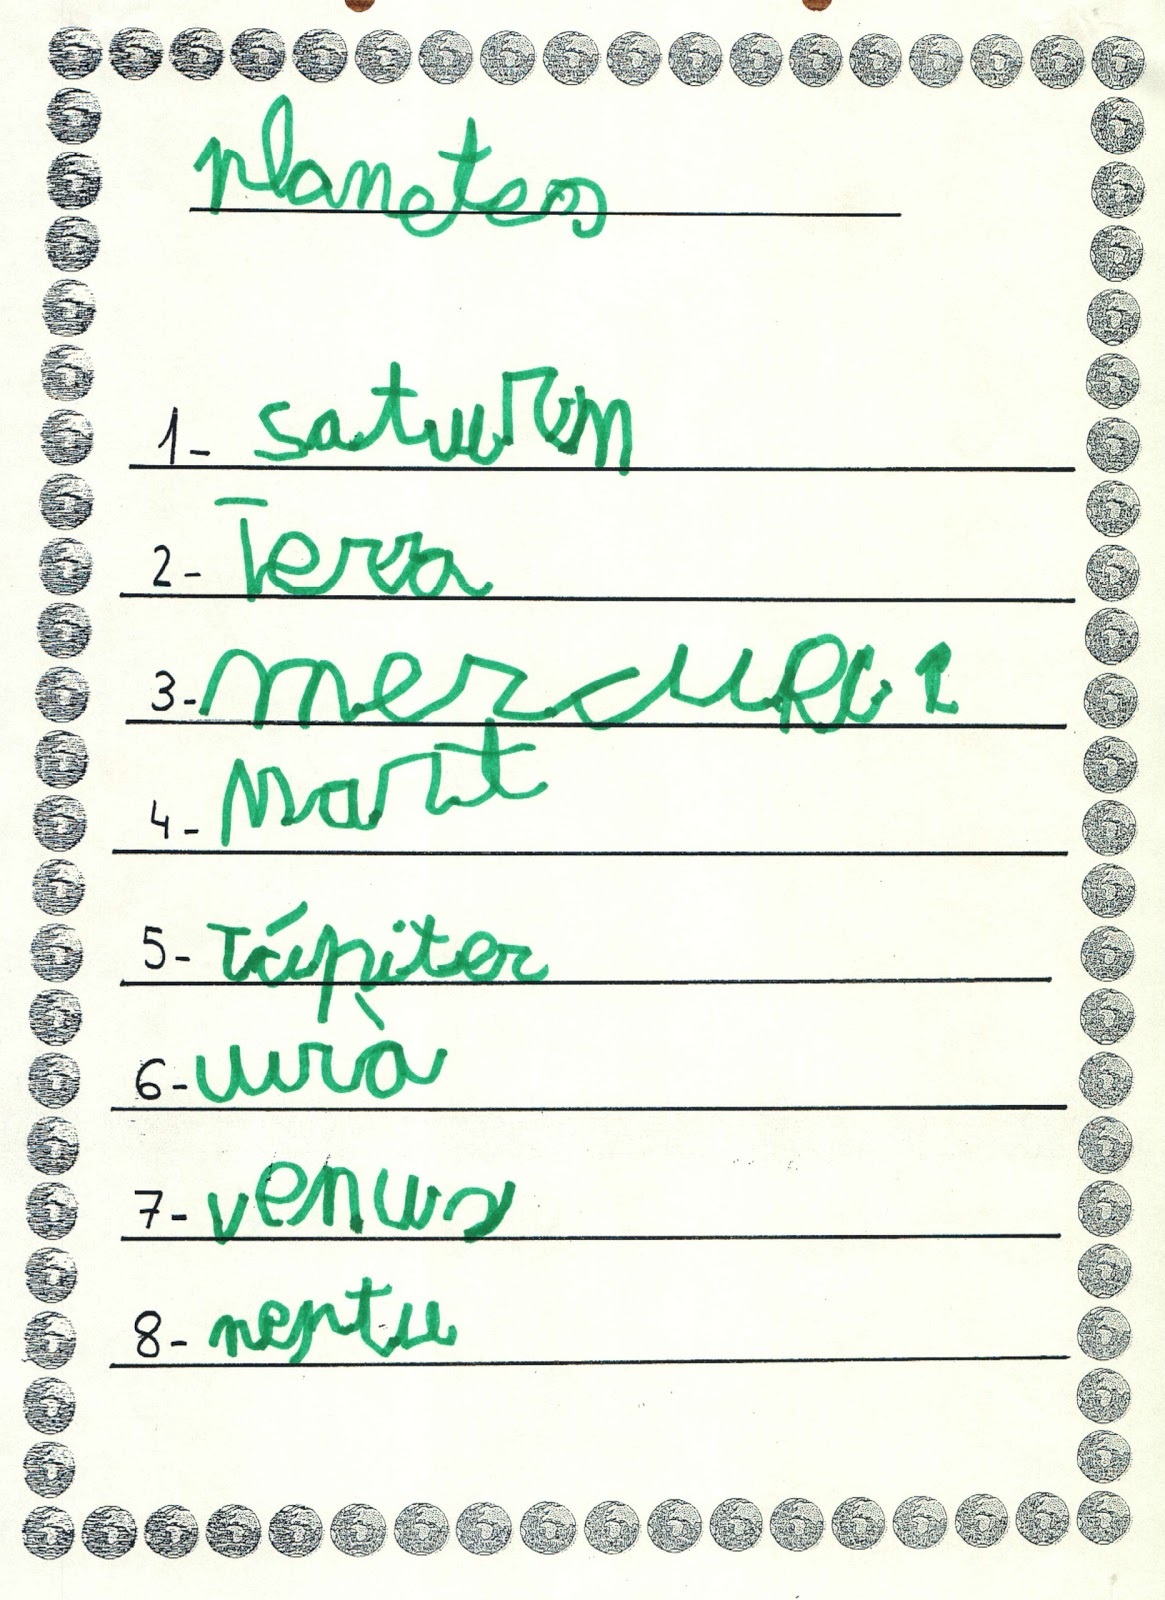 planetes
1- saturn
2- Terra
3- mercuri
4- Mart
5- Júpiter
6- urà
7- venus
8- neptu